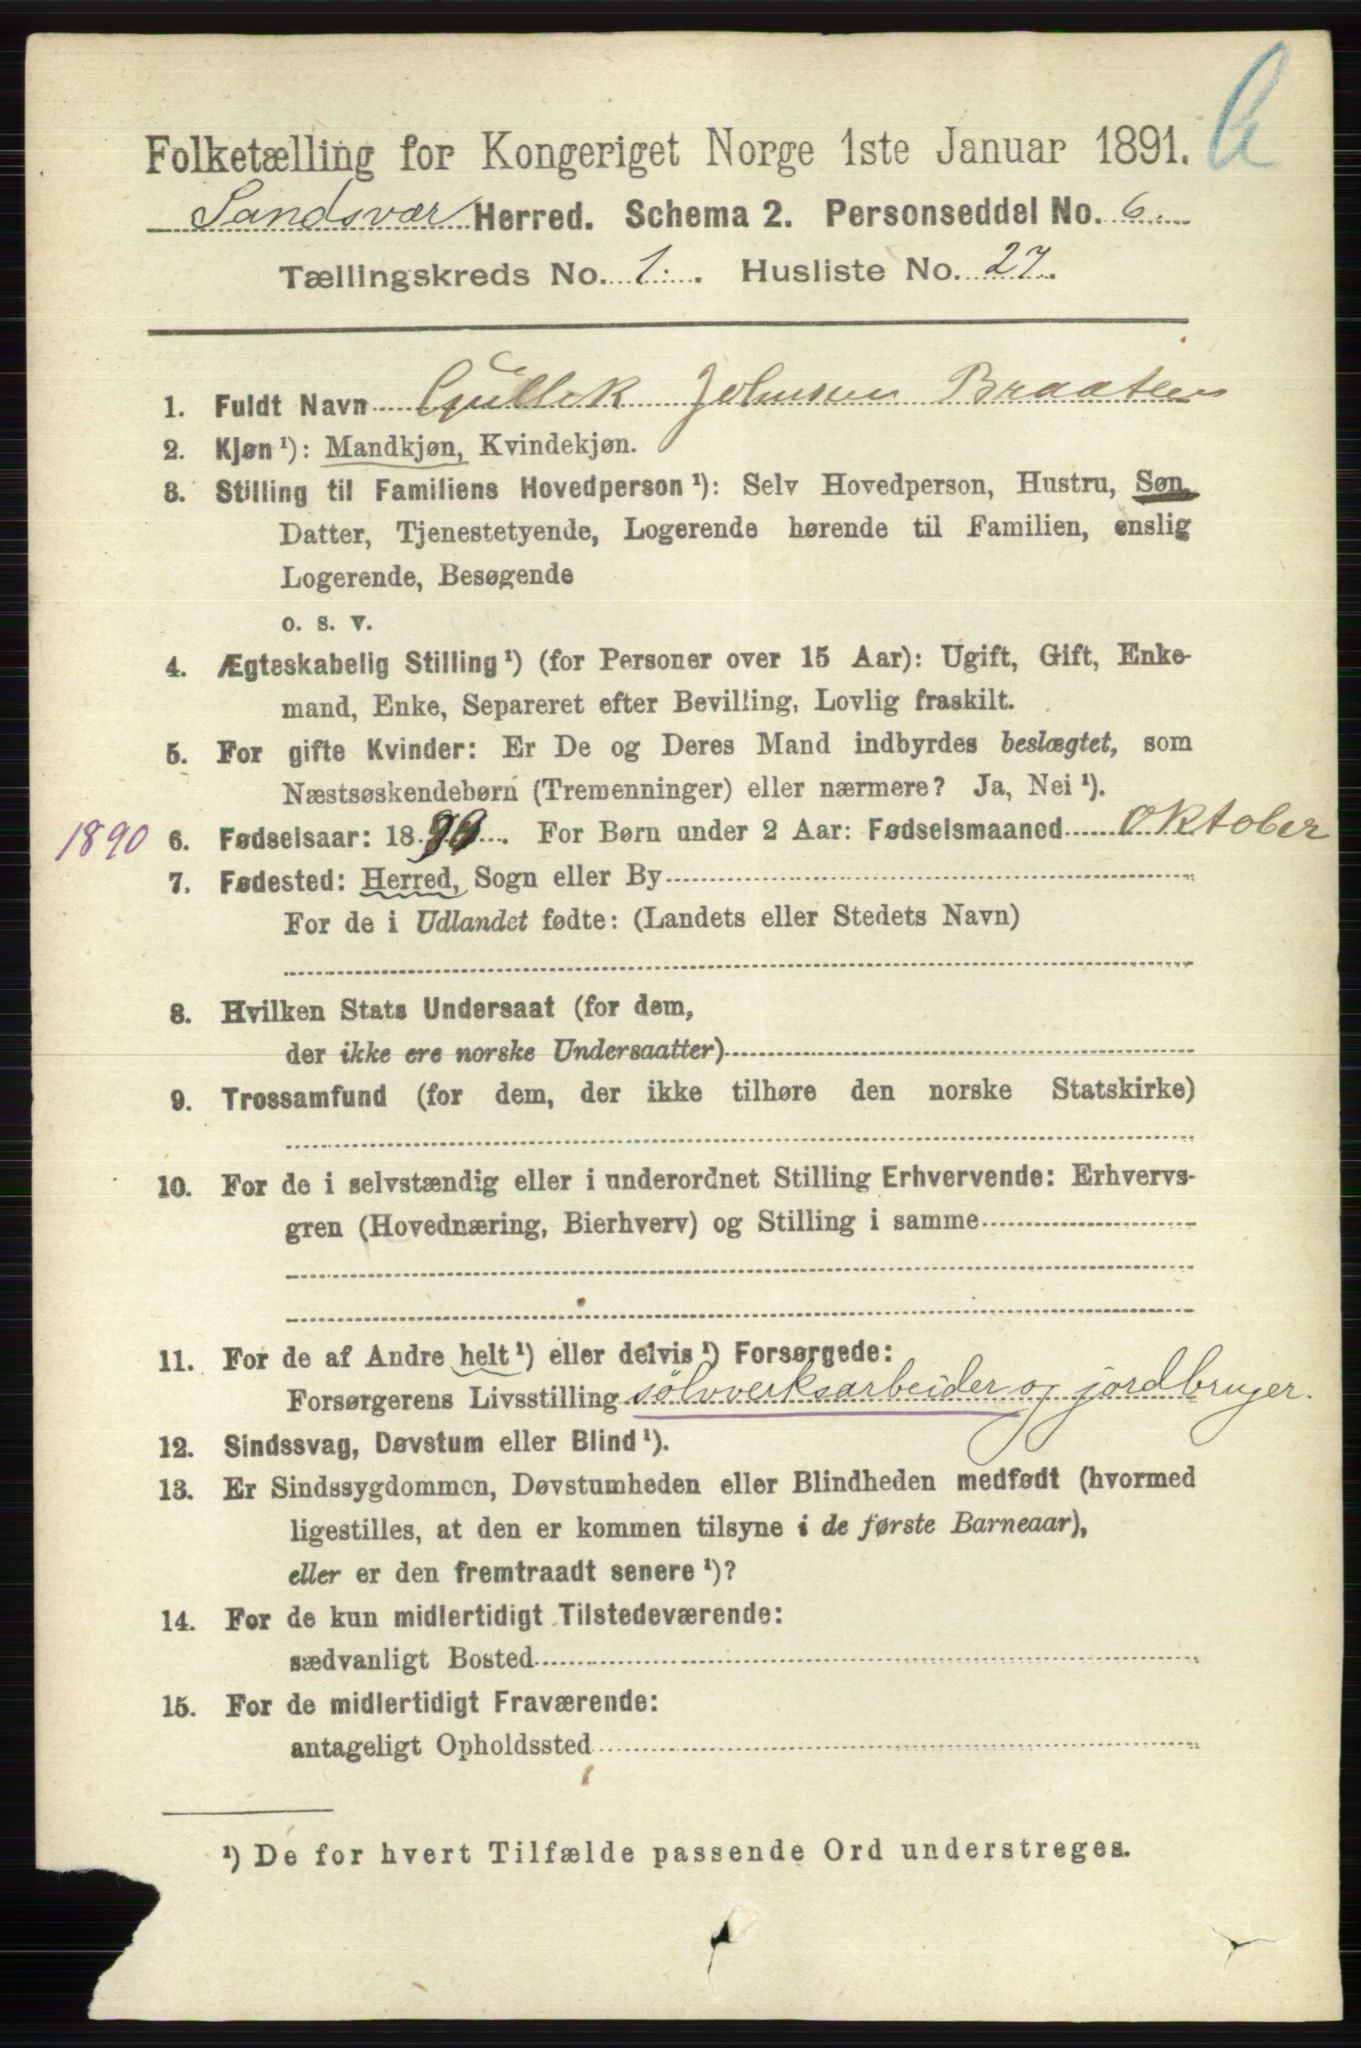 Folketælling for Kongeriget Norge 1ste Januar 1891.
Sandsvær Herred. Schema 2. Personseddel No. 6.
Tællingskreds No. 1. Husliste No. 27.
1. Fuldt Navn Gullik Johnsen Braaten
2. Kjøn ¹): Mandkjøn, Kvindekjøn.
3. Stilling til Familiens Hovedperson ¹): Selv Hovedperson, Hustru, Søn,
Datter, Tjenestetyende, Logerende hørende til Familien, enslig
Logerende, Besøgende
o. s. v.
4. Ægteskabelig Stilling ¹) (for Personer over 15 Aar): Ugift, Gift, Enke-
mand, Enke, Separeret efter Bevilling, Lovlig fraskilt.
5. For gifte Kvinder: Er De og Deres Mand indbyrdes beslægtet, som
Næstsøskendebørn (Tremenninger) eller nærmere? Ja, Nei ¹).
1890 6. Fødselsaar: 18 90. For Børn under 2 Aar: Fødselsmaaned oktober
7. Fødested: Herred, Sogn eller By
For de i Udlandet fødte: (Landets eller Stedets Navn)
8. Hvilken Stats Undersaat (for dem,
der ikke ere norske Undersaatter)
9. Trossamfund (for dem, der ikke tilhøre den norske Statskirke)
10. For de i selvstændig eller i underordnet Stilling Erhvervende: Erhvervs-
gren (Hovednæring, Bierhverv) og Stilling i samme
11. For de af Andre helt ¹) eller delvis ¹) Forsørgede:
Forsørgerens Livsstilling sølvverksarbeider og jordbruger.
12. Sindssvag, Døvstum eller Blind ¹).
13. Er Sindssygdommen, Døvstumheden eller Blindheden medfødt (hvormed
ligestilles, at den er kommen tilsyne i de første Barneaar),
eller er den fremtraadt senere ¹)?
14. For de kun midlertidigt Tilstedeværende:
sædvanligt Bosted
15. For de midlertidigt Fraværende:
antageligt Opholdssted
¹) De for hvert Tilfælde passende Ord understreges.